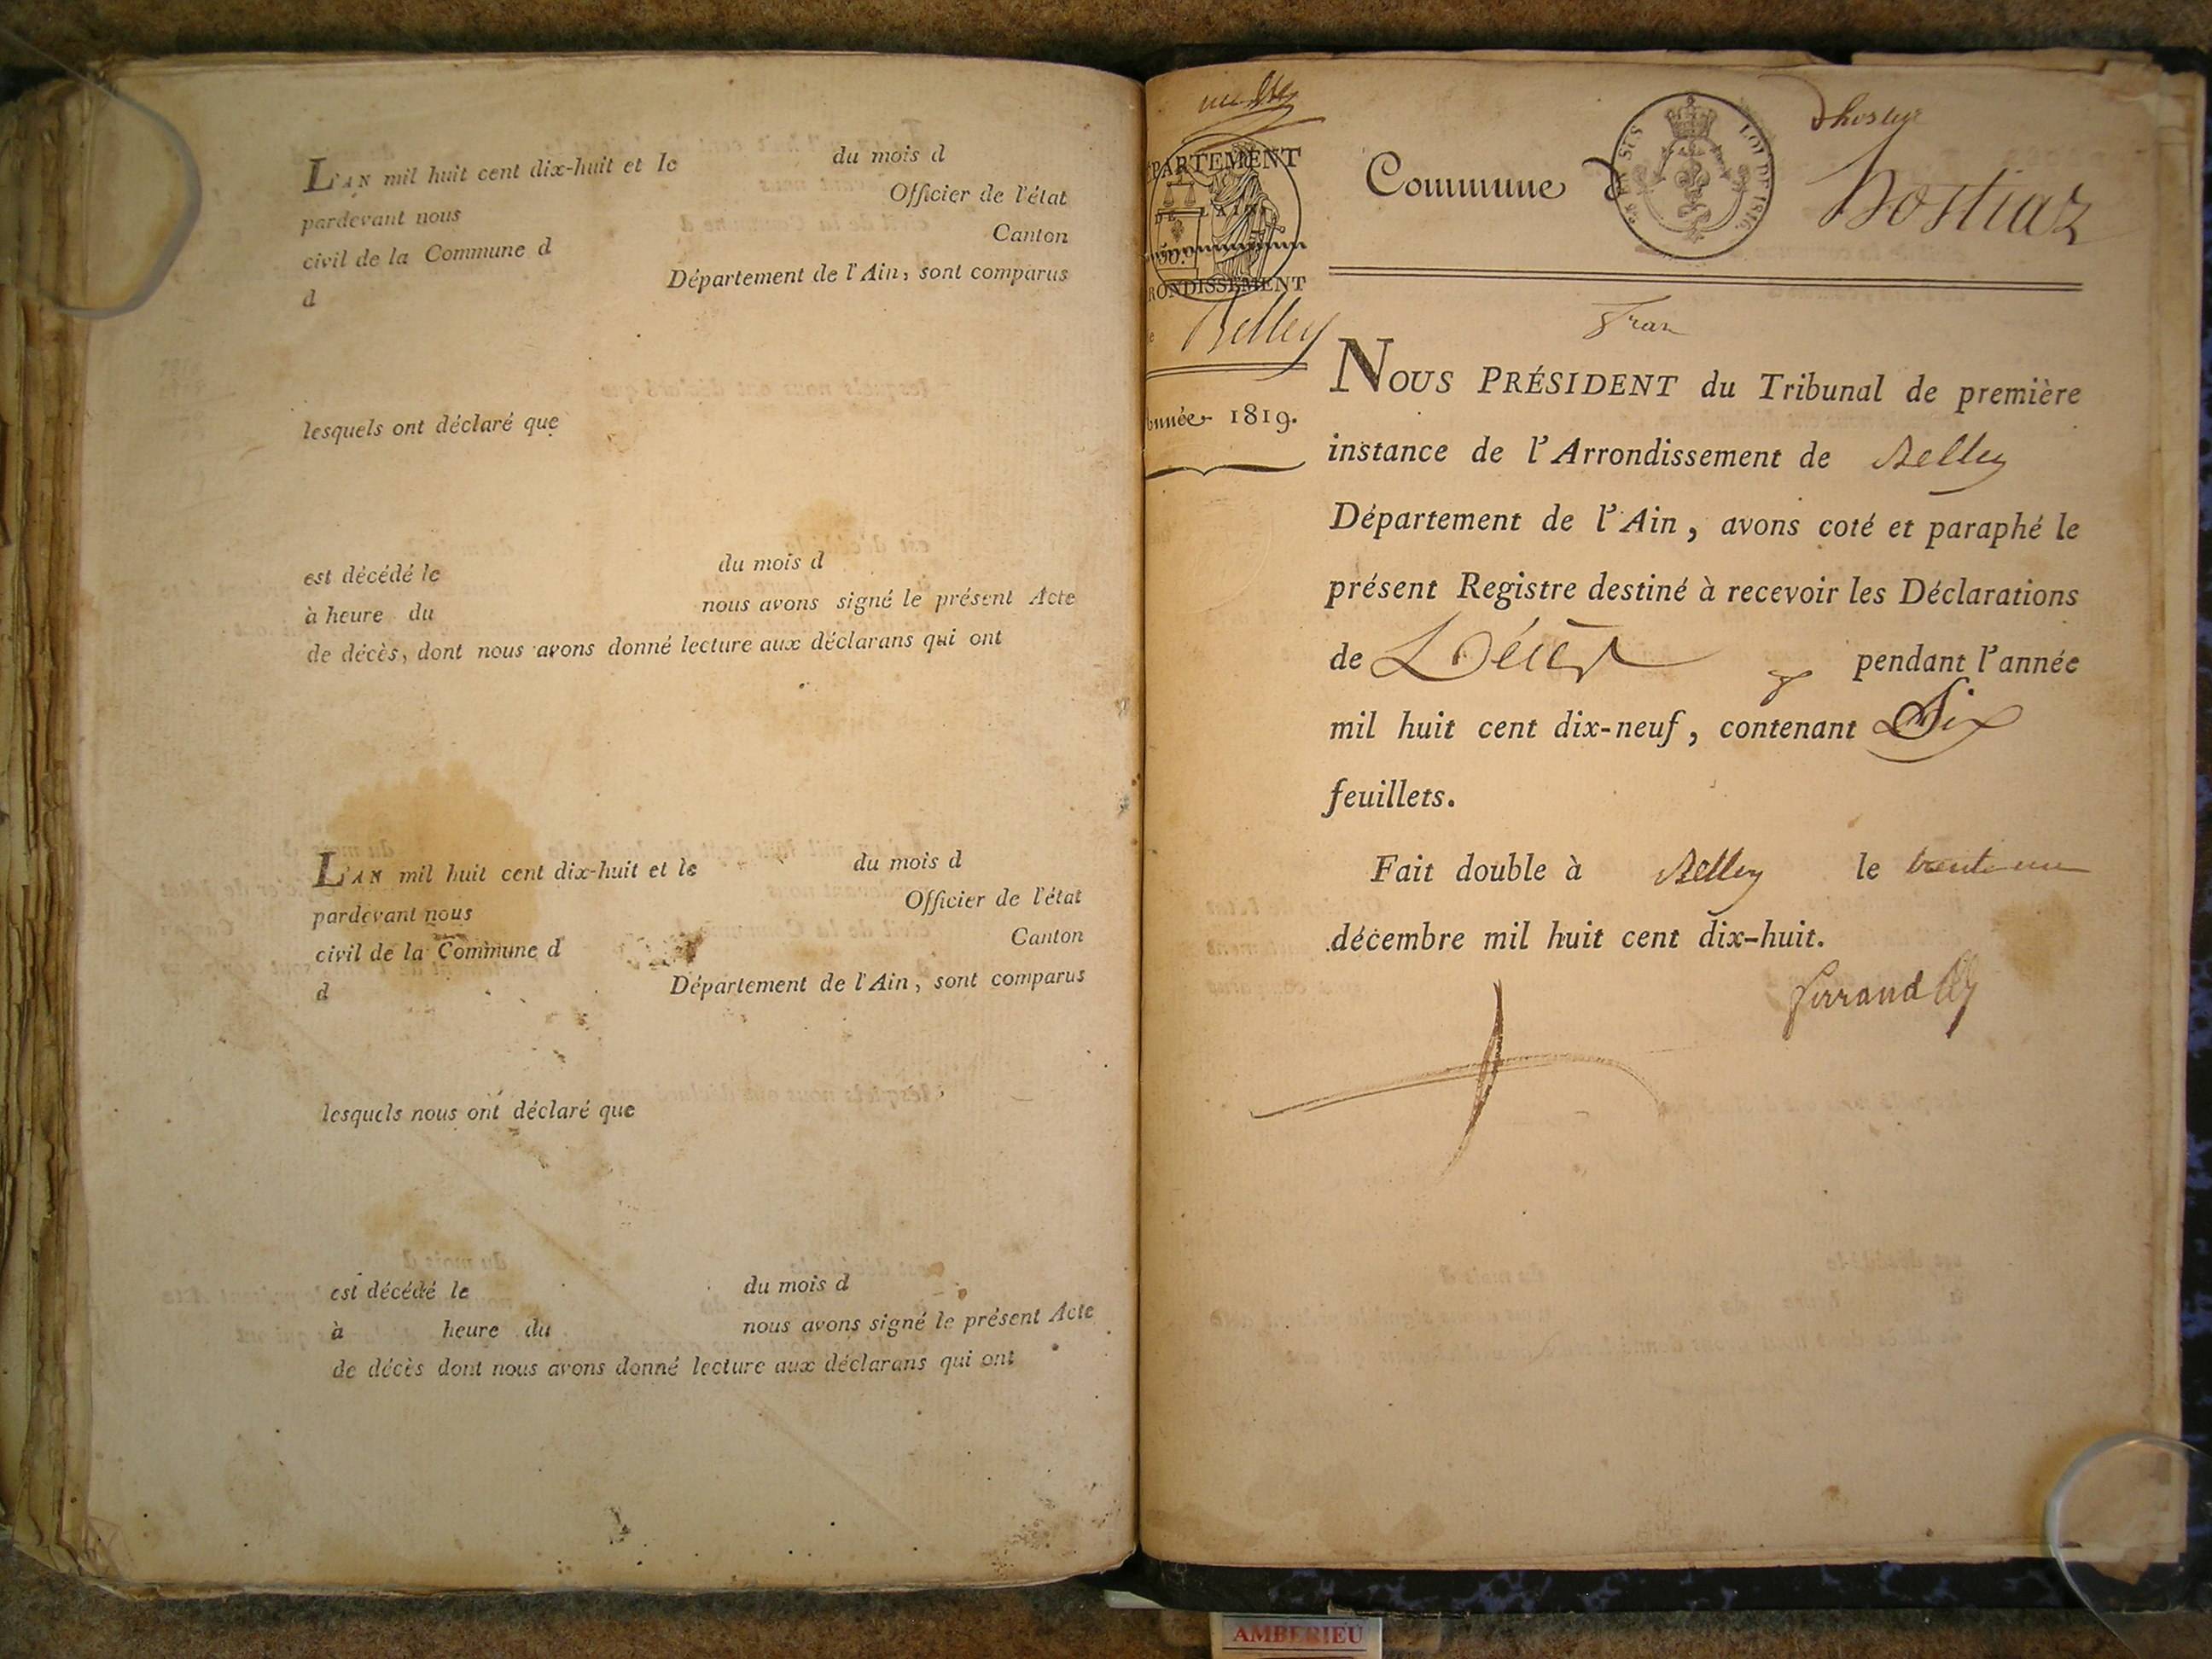 L'AN mil huit cent dix-huit et le du mois d
pardevant nous Officier de l'état
civil de la Commune d Canton
d Département de l'Ain, sont comparus
lesquels ont déclaré que
est décédé le du mois d
à heure du nous avons signé le présent Acte
de décès, dont nous avons donné lecture aux déclarans qui ont
L'AN mil huit cent dix-huit et le du mois d
pardevant nous Officier de l'état
civil de la Commune d Canton
d Département de l'Ain, sont comparus
lesquels nous ont déclaré que
est décédé le du mois d
à heure du nous avons signé le présent Acte
de décès dont nous avons donné lecture aux déclarans qui ont
ÉPARTEMENT
DE L'AIN
RONDISSEMENT
e Belley
Année 1819.
Commune d Hostiaz
LOI DE 1816
NOUS PRÉSIDENT du Tribunal de première
instance de l'Arrondissement de Belley
Département de l'Ain, avons coté et paraphé le
présent Registre destiné à recevoir les Déclarations
de Décès pendant l'année
mil huit cent dix-neuf, contenant Six
feuillets.
Fait double à Belley le trente un
décembre mil huit cent dix-huit.
AMBERIEU